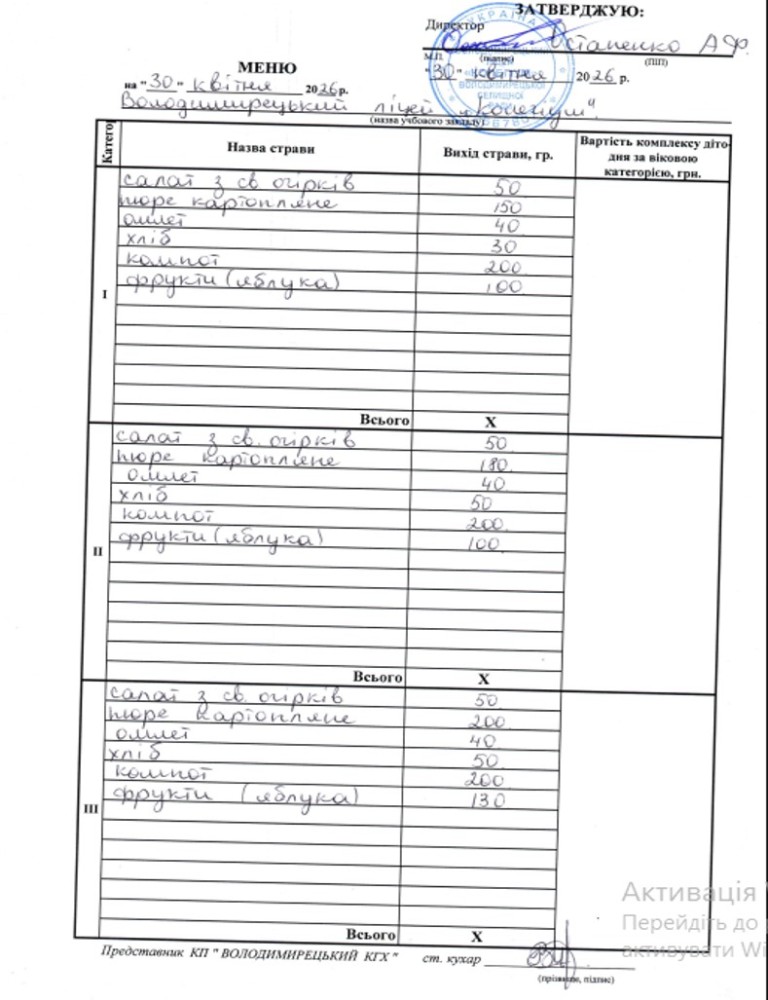 ЗАТВЕРДЖУЮ:
Директор
Остапенко А.Ф.
М.П. (підпис) (ПІП)
"30" квітня 2026 р.
МЕНЮ
на "30" квітня 2026 р.
Володимирецький ліцей „Колегіум"
(назва учбового закладу)
УКРАЇНА
ВОЛОДИМИРЕЦЬКОЇ
СЕЛИЩНОЇ
Категор Назва страви Вихід страви, гр. Вартість комплексу діто-дня за віковою категорією, грн.
I
салат з св огірків 50
пюре картопляне 150
омлет 40
хліб 30
компот 200
фрукти (яблука) 100
Всього X
II
салат з св. огірків 50
пюре картопляне 180
омлет 40
хліб 50
компот 200
фрукти (яблука) 100
Всього X
III
салат з св. огірків 50
пюре картопляне 200
омлет 40
хліб 50
компот 200
фрукти (яблука) 130
Всього X
Представник КП " ВОЛОДИМИРЕЦЬКИЙ КГХ " ст. кухар
(прізвище, підпис)
Активація
Перейдіть до
активувати Wi